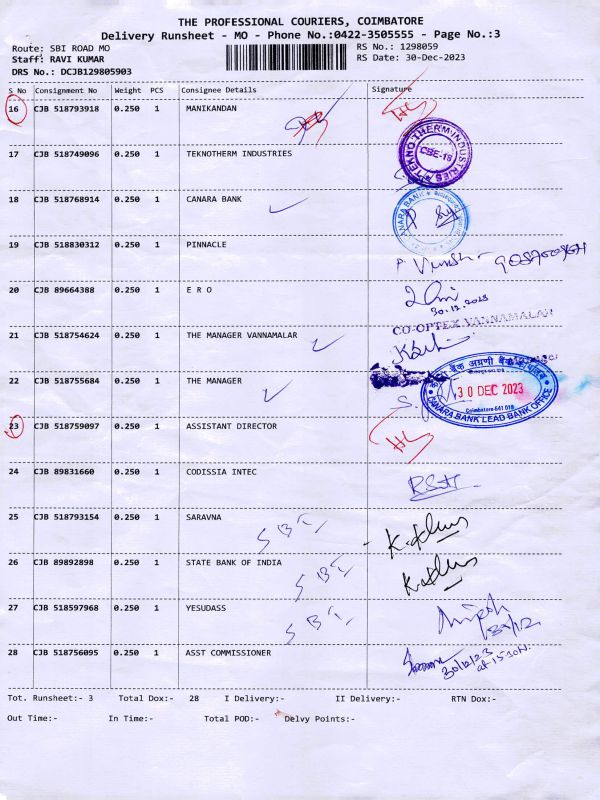 THE PROFESSIONAL COURIERS, COIMBATORE
Delivery Runsheet - MO - Phone No.:0422-3505555 - Page No.:3
Route: SBI ROAD MO
RS No.: 1298059
Staff: RAVI KUMAR
RS Date: 30-Dec-2023
DRS No.: DCJB129805903
S No Consignment No Weight PCS Consignee Details Signature
16 CJB 518793918 0.250 1 MANIKANDAN
17 CJB 518749096 0.250 1 TEKNOTHERM INDUSTRIES
TEKNO THERM INDUSTRIES
CBE-18
18 CJB 518768914 0.250 1 CANARA BANK
19 CJB 518830312 0.250 1 PINNACLE
20 CJB 89664388 0.250 1 E R O
30.12.2023
CO-OPTEX VANNAMALAR
21 CJB 518754624 0.250 1 THE MANAGER VANNAMALAR
22 CJB 518755684 0.250 1 THE MANAGER
30 DEC 2023
Coimbatore-641 018
CANARA BANK LEAD BANK OFFICE
23 CJB 518759097 0.250 1 ASSISTANT DIRECTOR
24 CJB 89831660 0.250 1 CODISSIA INTEC
25 CJB 518793154 0.250 1 SARAVNA SBI
26 CJB 89892898 0.250 1 STATE BANK OF INDIA SBI
27 CJB 518597968 0.250 1 YESUDASS SBI
30/12
28 CJB 518756095 0.250 1 ASST COMMISSIONER
30/12/23
Tot. Runsheet:- 3 Total Dox:- 28 I Delivery:- II Delivery:- RTN Dox:-
Out Time:- In Time:- Total POD:- Delvy Points:-